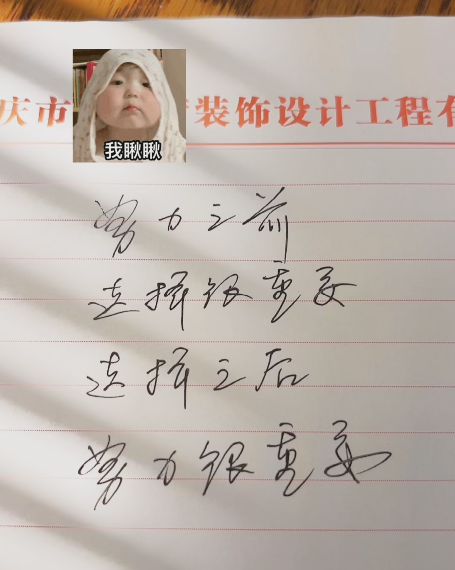 庆市 装饰设计工程有
我瞅瞅
努力之前
选择很重要
选择之后
努力很重要